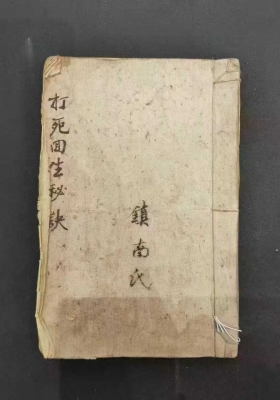 打死回生秘訣
鎮南氏